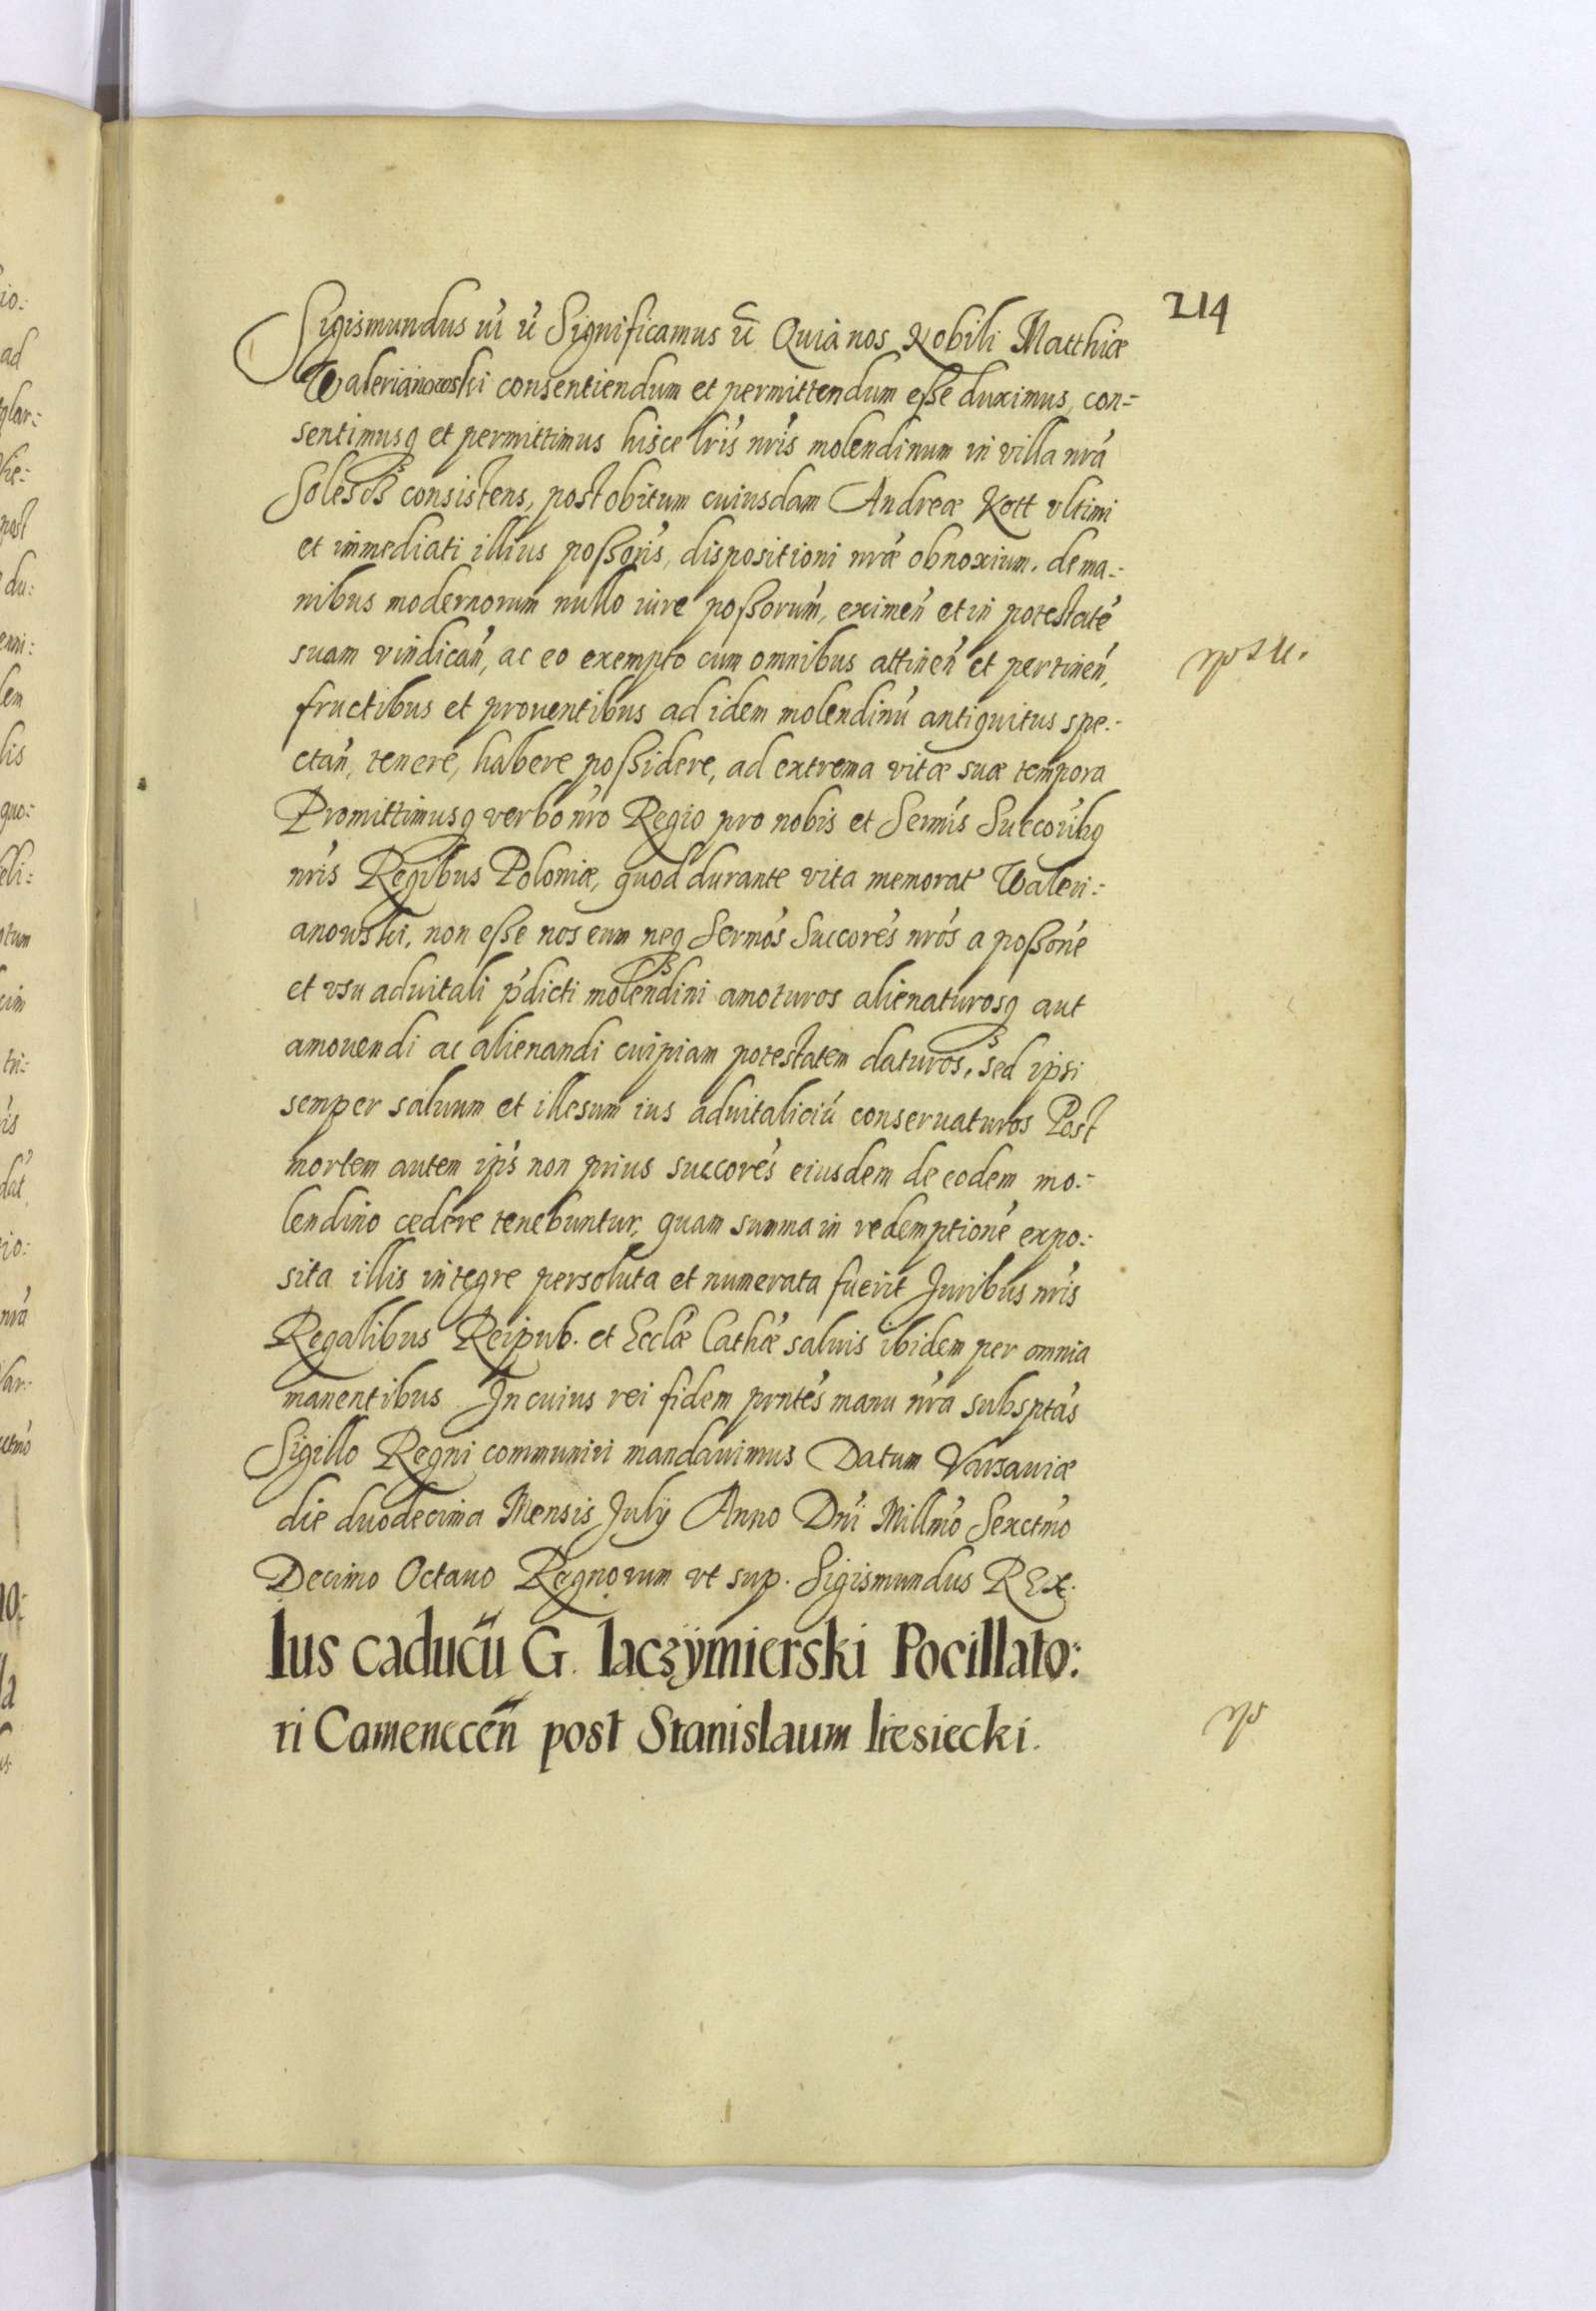 214
Sigismundus iii &c̃ Significamus &c̃ Quia nos Nobili Matthiæ
Walerianowski consentiendum et permittendum eße duximus, con=
sentimusq et permittimus hisce lr̃is nr̃is molendinum in villa nr̃a
Soles consistens, post obitum cuiusdam Andreæ Kott vltimi
et immediati illius poßoris, dispositioni nr̃æ obnoxium. de ma:
nibus modernorum nullo iure poßorum̃, eximeñ et in potestatẽ
suam vindicañ, ac eo exempto cum omnibus attineñ et pertineñ,
fructibus et prouentibus ad idem molendinũ antiquitus spe:
ctañ, tenere, habere poßidere, ad extrema vitæ suæ tempora
Promittimusq verbo nr̃o Regio pro nobis et Sermis Succorib9
nr̃is Regibus Poloniæ, quod durante vita memorat̃ Waleri:
anowski, non eße nos eum neq Sermos Succores nr̃os a poßone
et vsu aduitali p̃dicti molendini amoturos alienaturosq aut
amouendi ac alienandi cuipiam potestatem daturos, sed ipsi
semper saluum et illesum ius aduitaliciũ conseruaturos Post
mortem autem ip̃is non prius succores eiusdem de eodem mo:
lendino cedere tenebuntur, quam summa in redemptionẽ expo:
sita illis integre persoluta et numerata fuerit Juribus nr̃is
Regalibus Reipub. et Ecclæ̃ Cathæ̃ saluis ibidem per omnia
manentibus In cuius rei fidem pr̃ntes manu nr̃a subsptas̃
Sigillo Regni communiri mandauimus Datum Varsauiæ
die duodecima Mensis Julij Anno Dñi Millm̃o Sexctm̃o
Decimo Octauo Regnorum vt sup. Sigismundus REx.
Ius caducũ G. Iaczÿmierski Pocillato:
ri Camenecẽn post Stanislaum Iresiecki.